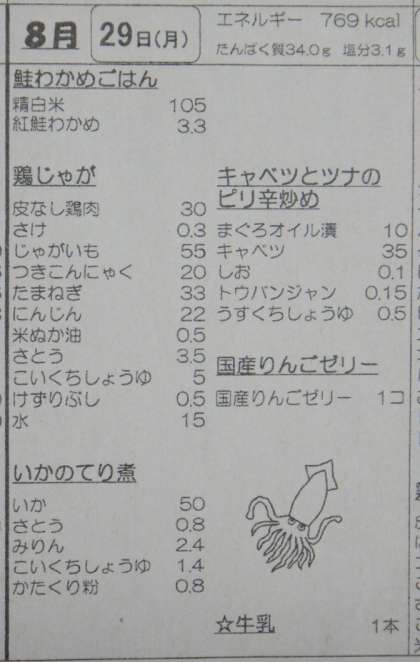 8月 29日(月)
エネルギー 769 kcal
たんぱく質34.0g 塩分3.1g
鮭わかめごはん
精白米 105
紅鮭わかめ 3.3
鶏じゃが
皮なし鶏肉 30
さけ 0.3
じゃがいも 55
つきこんにゃく 20
たまねぎ 33
にんじん 22
米ぬか油 0.5
さとう 3.5
こいくちしょうゆ 5
けずりぶし 0.5
水 15
いかのてり煮
いか 50
さとう 0.8
みりん 2.4
こいくちしょうゆ 1.4
かたくり粉 0.8
キャベツとツナの
ピリ辛炒め
まぐろオイル漬 10
キャベツ 35
しお 0.1
トウバンジャン 0.15
うすくちしょうゆ 0.5
国産りんごゼリー
国産りんごゼリー 1コ
☆牛乳 1本